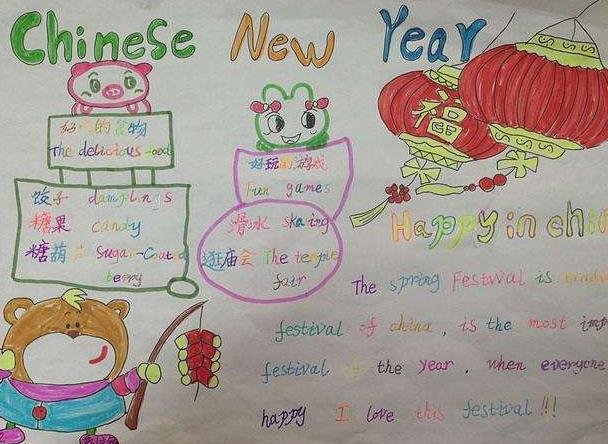 Chinese New Year
好吃的食物
The delicious food
饺子 damplings
糖果 candy
糖葫芦 Sugar-Coated
berry
好玩的游戏
Fun games
滑冰 skaing
逛庙会 The temple
fair
福
Happy in chin
The spring Festival is
festival of china, is the most imp
festival the year. when everyone
happy I love this festival!!!